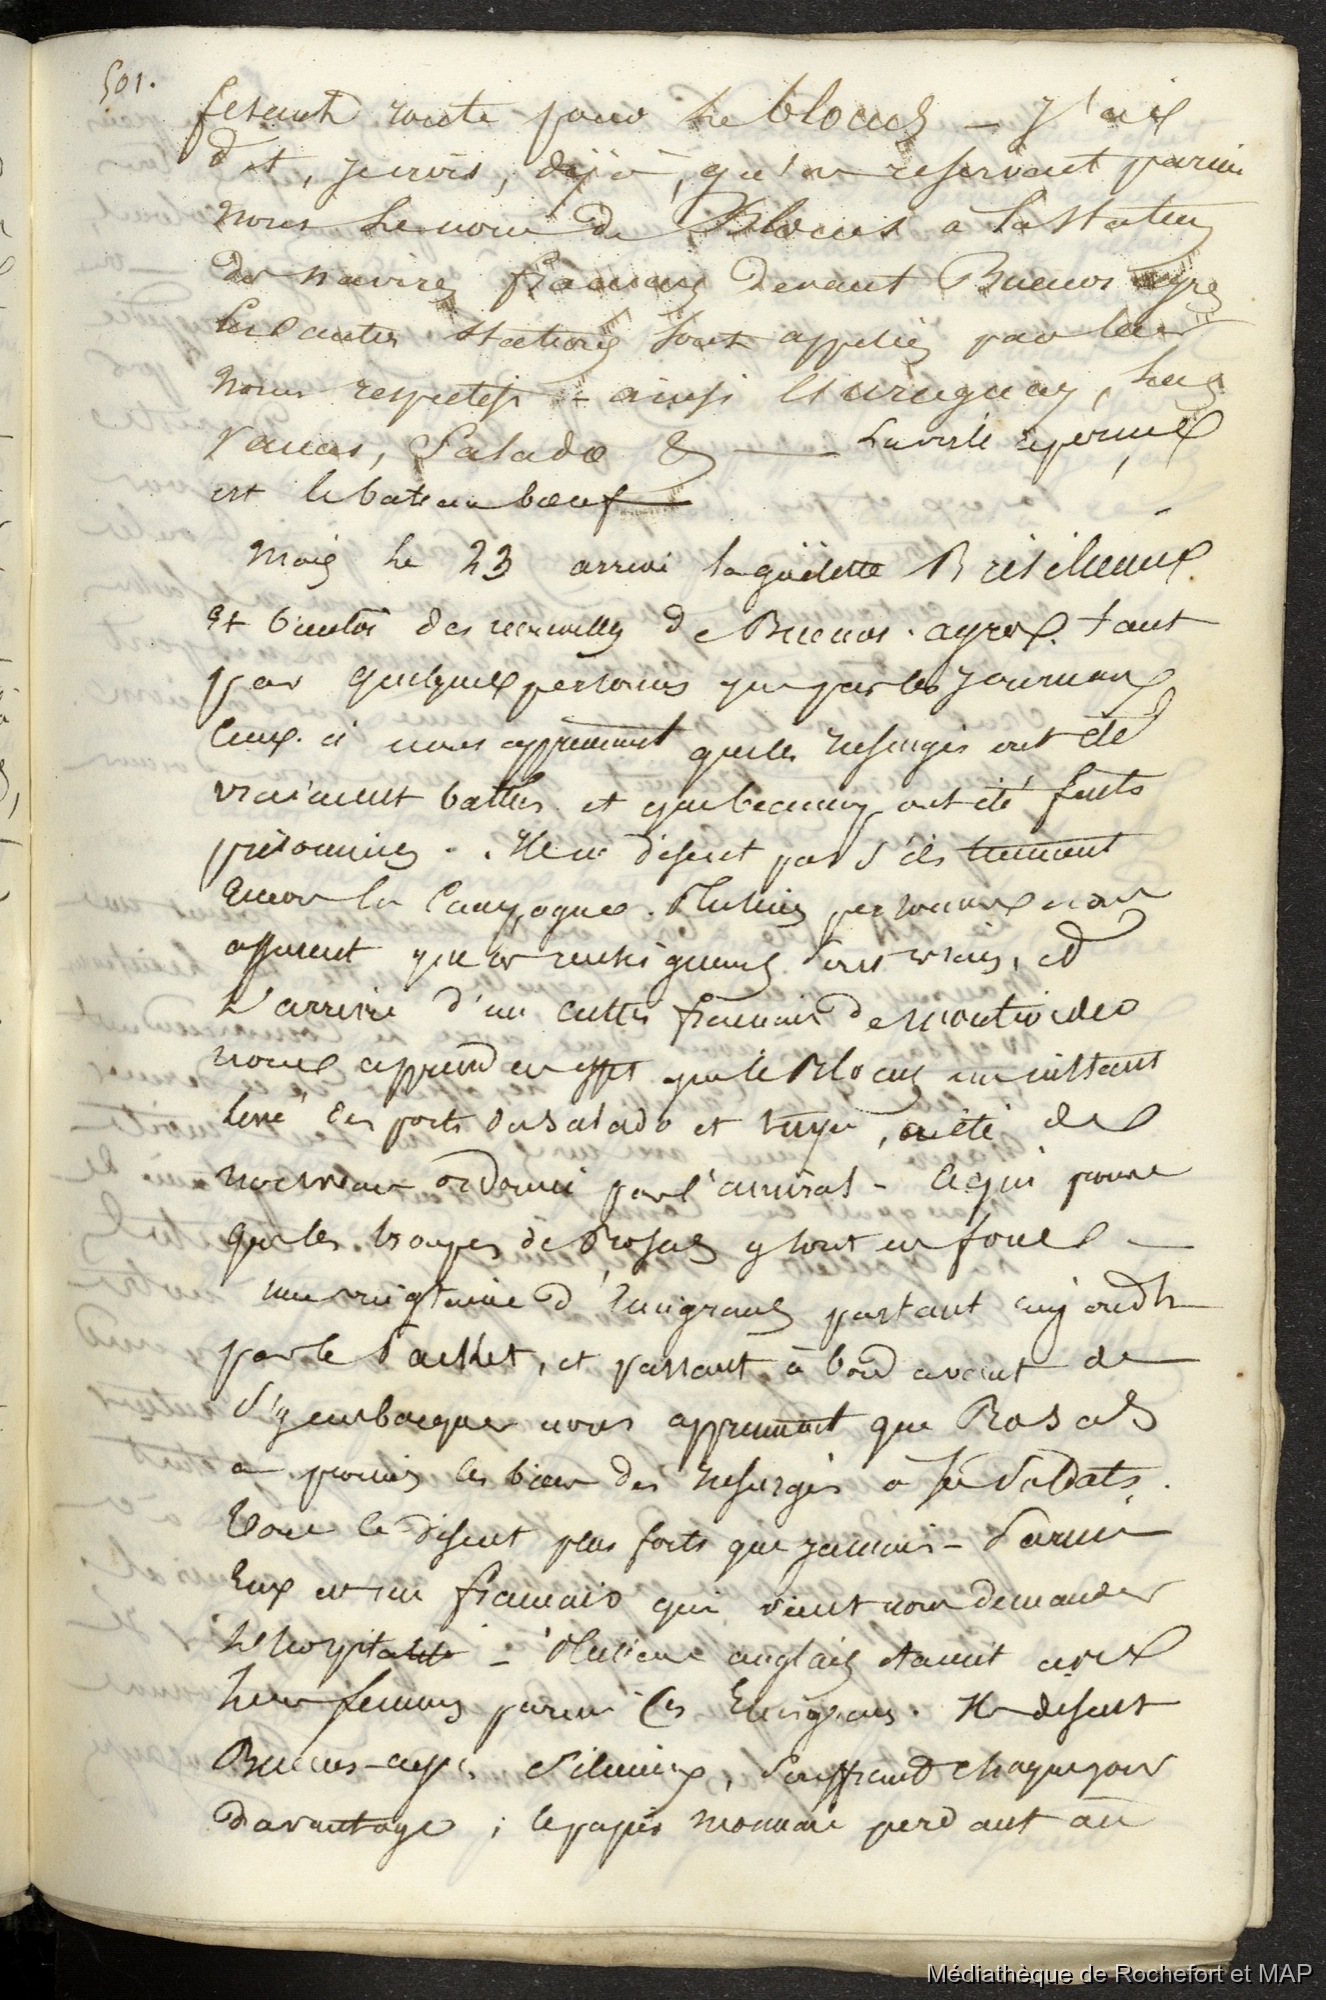 501.
fesant route pour le blocus — J'ai
dit, je crois, déjà, qu'on reservait parmi
nous le nom de Blocus à la station
des navires français devant Buenos ayres
les autres stations sont appelées par leurs
noms respectifs — ainsi l'uruguay, las
vacas, Salado & —
est le bateau bœuf —
Mais le 23 arrive la goëlette Brésilienne
et bientôt des nouvelles de Buenos-ayres. tant
par quelques personnes que par les journaux
Ceux-ci nous apprennent que les insurgés ont été
vraiment battus et que beaucoup ont été faits
prisonniers. Ils ne disent pas s'ils tiennent
encor la Campagne. Plusieurs personnes nous
assurent que ces renseignemens sont vrais, et
L'arrivée d'un cutter français de montevideo
nous apprend en effet que le Blocus un instant
levé des ports du Salado et tuyu, a été de
nouveau ordonné par l'amiral — ce qui prouve
que les troupes de Rosas y sont en force —
une vingtaine d'émigrans partant aujourd'h
par le Packet, et passant à bord avant de
s'y embarquer nous apprennent que Rosas
a promis les biens des insurgés à ses soldats.
Tous le disent plus forts que jamais — Parmi
Eux est un français qui vient nous demander
L'hospitalité — Plusieurs anglais étaient avec
leurs femmes parmi ces Emigrans. Ils disent
Buenos-ayres silencieux, souffrant chaque jour
davantage ; le papier monnaie perdant au